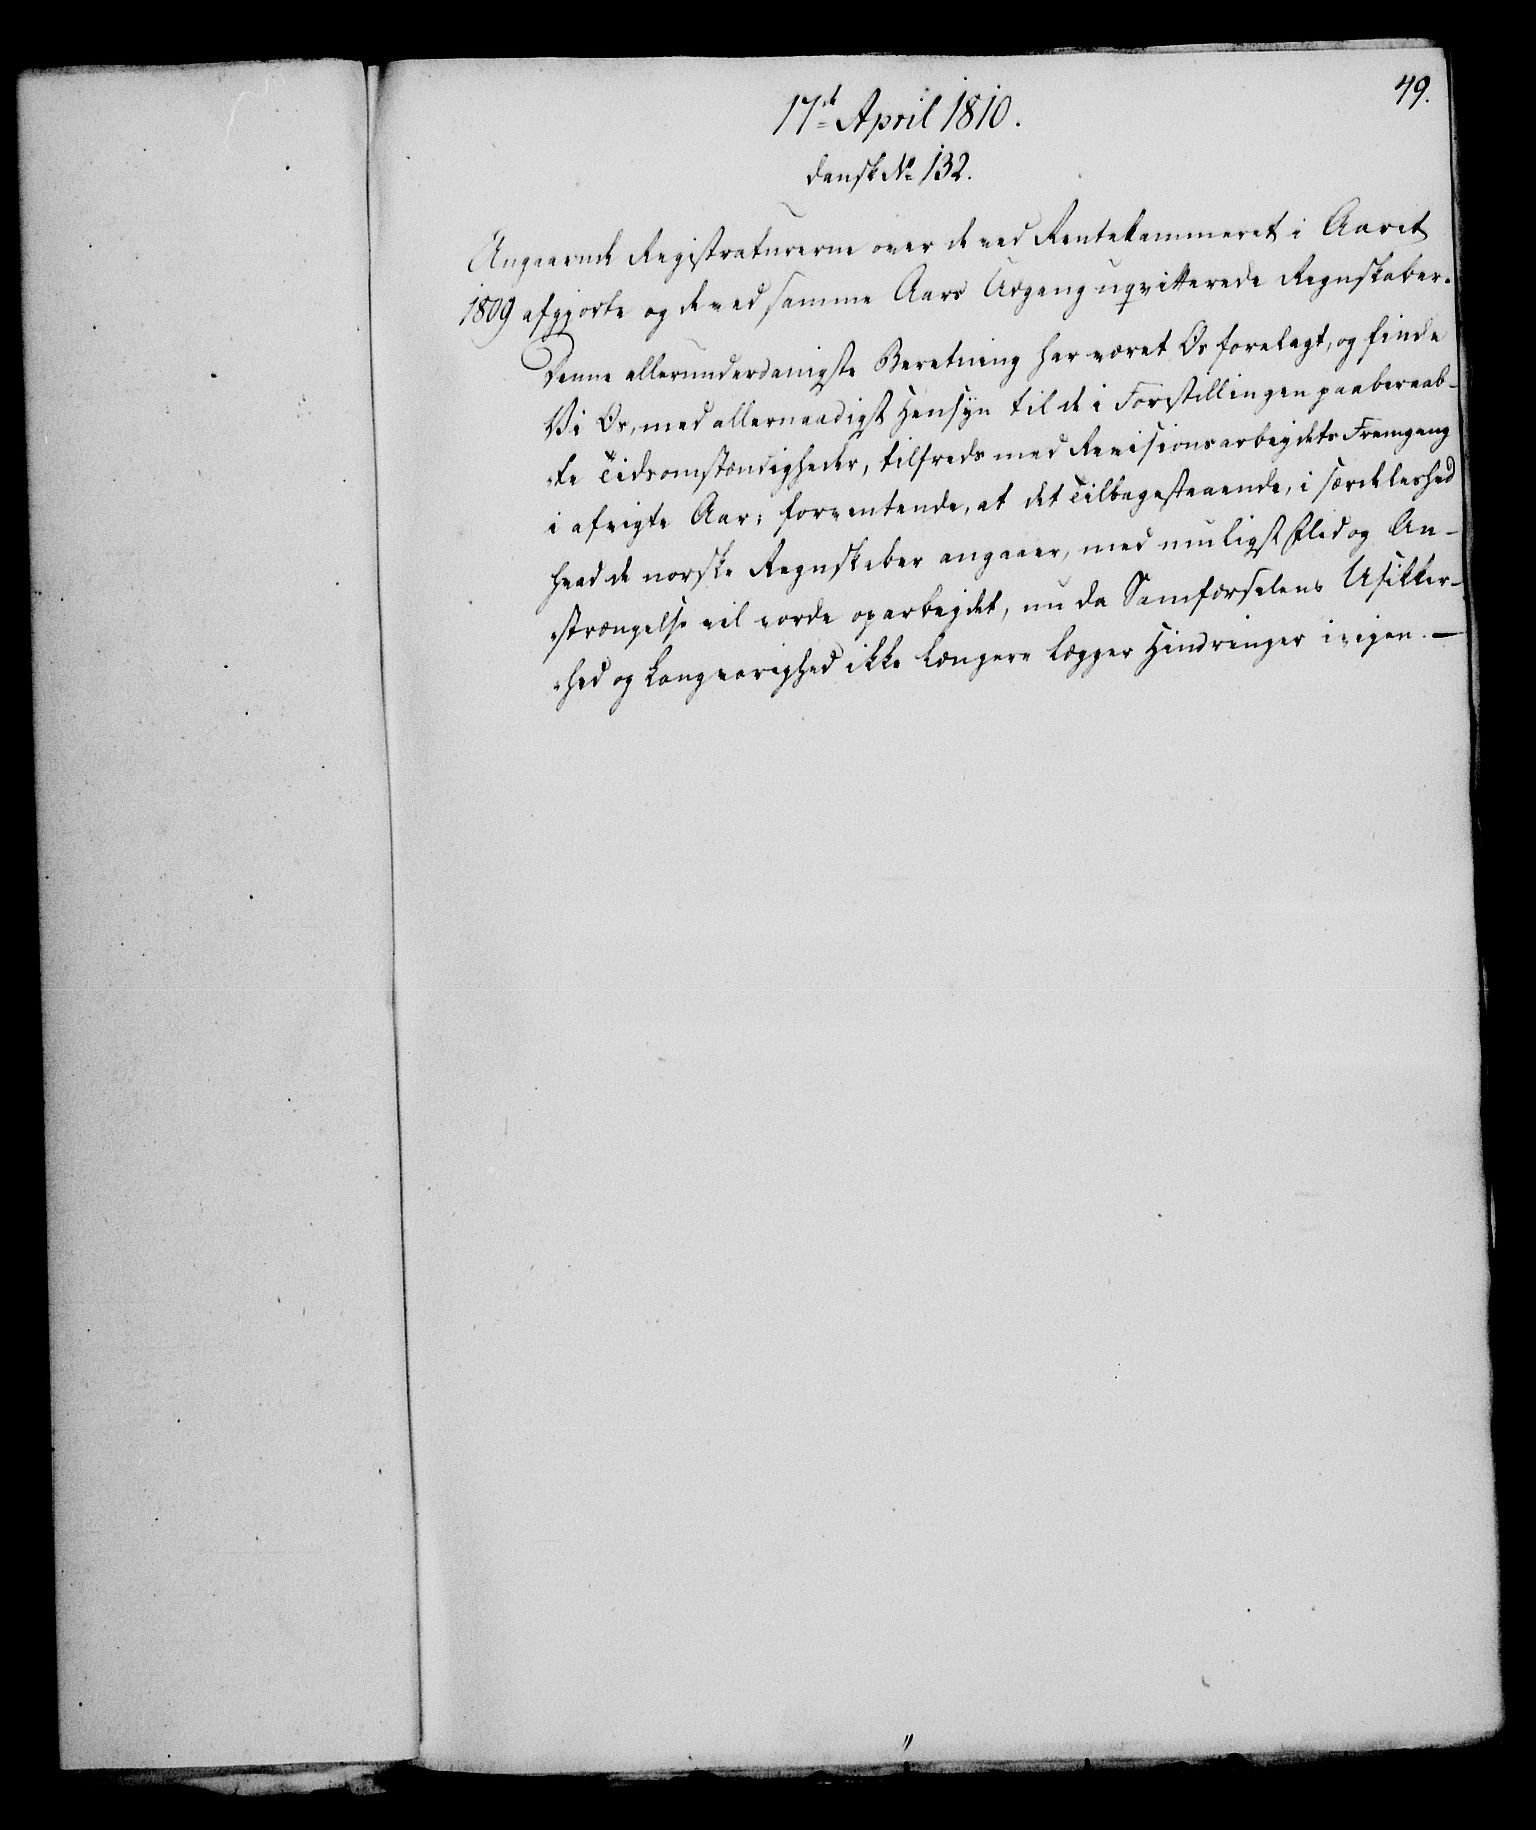 49.
17de April 1810.
dansk No 132.
Angaaende Registraturerne over de ved Rentekammeret i Aaret
1809 afgjorte og de ved samme Aars Udgang uqvitterede Regnskaber.
Denne allerunderdanigste Beretning har været Os forelagt, og finde
Vi Os, med allernaadigst Hensyn til de i Forestillingen paaberaab-
-te Tidsomstændigheder, tilfreds med Revisionsarbeydets Fremgang
i afvigte Aar; forventende, at det Tilbagestaaende, i særdeleshed
hvad de norske Regnskaber angaaer, med muligst Flid og An-
-strængelse vil vorde oparbeydet, nu da Samfærselens Usikker-
-hed og Langvarighed ikke længere lægger Hindringer i veyen. —